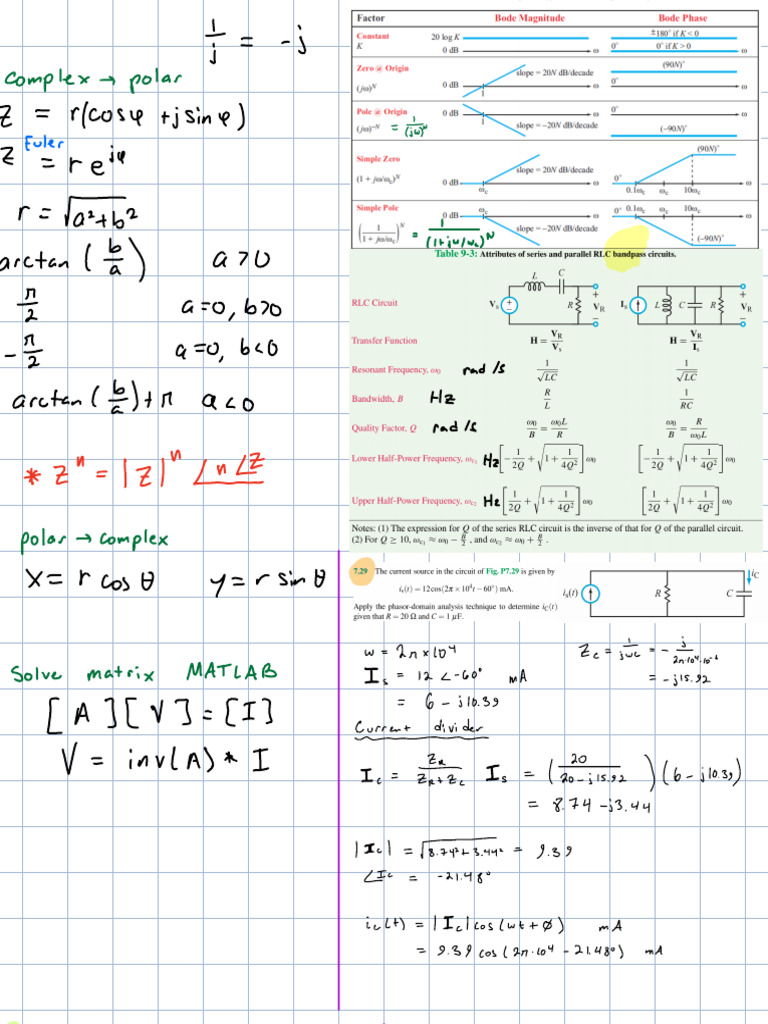 1/j = -j
complex → polar
z = r(cosφ + j sinφ)
Euler
z = r e^jφ
r = √(a²+b²)
arctan (b/a) a>0
π/2 a=0, b>0
-π/2 a=0, b<0
arctan (b/a)+π a<0
* z^n = |z|^n ∠n∠z
polar → complex
x = r cos θ y = r sin θ
Solve matrix MATLAB
[A][V] = [I]
V = inv(A) * I
Factor Bode Magnitude Bode Phase
Constant
K
20 log K
0 dB ω
±180° if K < 0
0° 0° if K > 0 ω
Zero @ Origin
(jω)^N
0 dB 1 slope = 20N dB/decade ω
(90N)°
0° ω
Pole @ Origin
(jω)^-N = 1/(jω)^N
0 dB 1 slope = −20N dB/decade ω
0° ω
(−90N)°
Simple Zero
(1 + jω/ωc)^N
0 dB ωc slope = 20N dB/decade ω
(90N)°
0° 0.1ωc ωc 10ωc ω
Simple Pole
(1/(1 + jω/ωc))^N = 1/(1+jω/ωc)^N
0 dB ωc slope = −20N dB/decade ω
0° 0.1ωc ωc 10ωc ω
(−90N)°
Table 9-3: Attributes of series and parallel RLC bandpass circuits.
RLC Circuit
L C Vs + − R + VR −
Is L C R + VR −
Transfer Function H = VR/Vs H = VR/Is
Resonant Frequency, ω0 rad/s 1/√LC 1/√LC
Bandwidth, B Hz R/L 1/RC
Quality Factor, Q rad/s ω0/B = ω0L/R ω0/B = R/ω0L
Lower Half-Power Frequency, ωc1 Hz [−1/2Q + √(1 + 1/4Q²)] ω0 [−1/2Q + √(1 + 1/4Q²)] ω0
Upper Half-Power Frequency, ωc2 Hz [1/2Q + √(1 + 1/4Q²)] ω0 [1/2Q + √(1 + 1/4Q²)] ω0
Notes: (1) The expression for Q of the series RLC circuit is the inverse of that for Q of the parallel circuit.
(2) For Q ≥ 10, ωc1 ≈ ω0 − B/2, and ωc2 ≈ ω0 + B/2.
7.29 The current source in the circuit of Fig. P7.29 is given by
is(t) = 12cos(2π × 10⁴t − 60°) mA.
Apply the phasor-domain analysis technique to determine iC(t)
given that R = 20 Ω and C = 1 μF.
is(t) R C iC
w = 2π×10⁴
Zc = 1/jωc = -j/2π·10⁴·10⁻⁶
= -j15.92
Is = 12 ∠-60° mA
= 6 - j10.39
Current divider
Ic = ZR/(ZR+Zc) Is = (20/(20-j15.92))(6-j10.39)
= 8.74 - j3.44
|Ic| = √(8.74²+3.44²) = 9.39
∠Ic = -21.48°
ic(t) = |Ic| cos(wt+ϕ) mA
= 9.39 cos(2π·10⁴ - 21.48°) mA